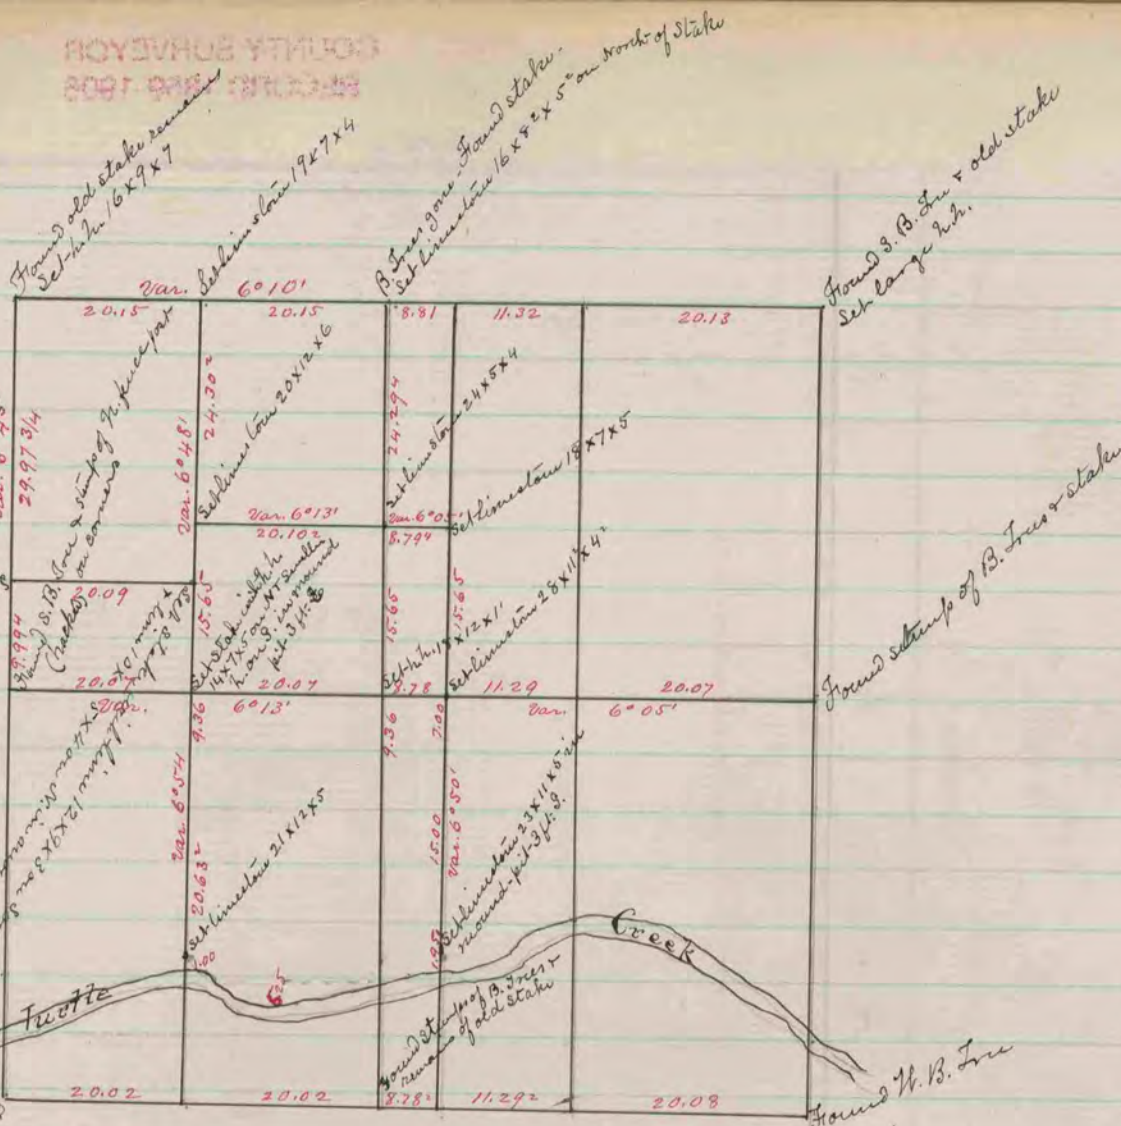 COUNTY SURVEYOR
RECORD 1956 1906
Found old stake remains
Set h.h. 16x9x7
Set limestone 19x7x4
B. Trees gone - Found stake.
Set limestone 16x8²x5² on North of Stake
Found S. B. Tree & old stake
Set large h.h.
Var. 6°10'
20.15
20.15
8.81
11.32
20.13
29.97 3/4
Found S. B. Tree & stump of
fence post
(hacked) on corners
Var. 6°48'
24.30²
Set limestone 20x12x6
24.294
Set limestone 24x5x4
Set limestone 18x7x5
Var. 6°13'
Var. 6°05'
20.10²
8.794
20.09
9.994
15.65
Set stake with h.h.
14x7x5 on N & smaller
h. on S. in mound
pit 3 ft. S
15.65
15.65
Set h.h. 18x12x11
Set limestone 28x11²x4²
20.07
20.07
8.78
11.29
20.07
Found stump of B. Trees & stake
Var. 6°13'
Var. 6°05'
9.36
9.36
7.00
Set stake
Var. 6°54
20.63²
Set limestone 21x12x5
15.00
Var. 6°50'
Set limestone 23x11x5 in
mound - pit 3 ft. S.
7.00
1.95
6.25
Turtle
Creek
Found stumps of B. Trees &
remains of old stake
20.02
20.02
8.78²
11.29²
20.08
Found W. B. Tree